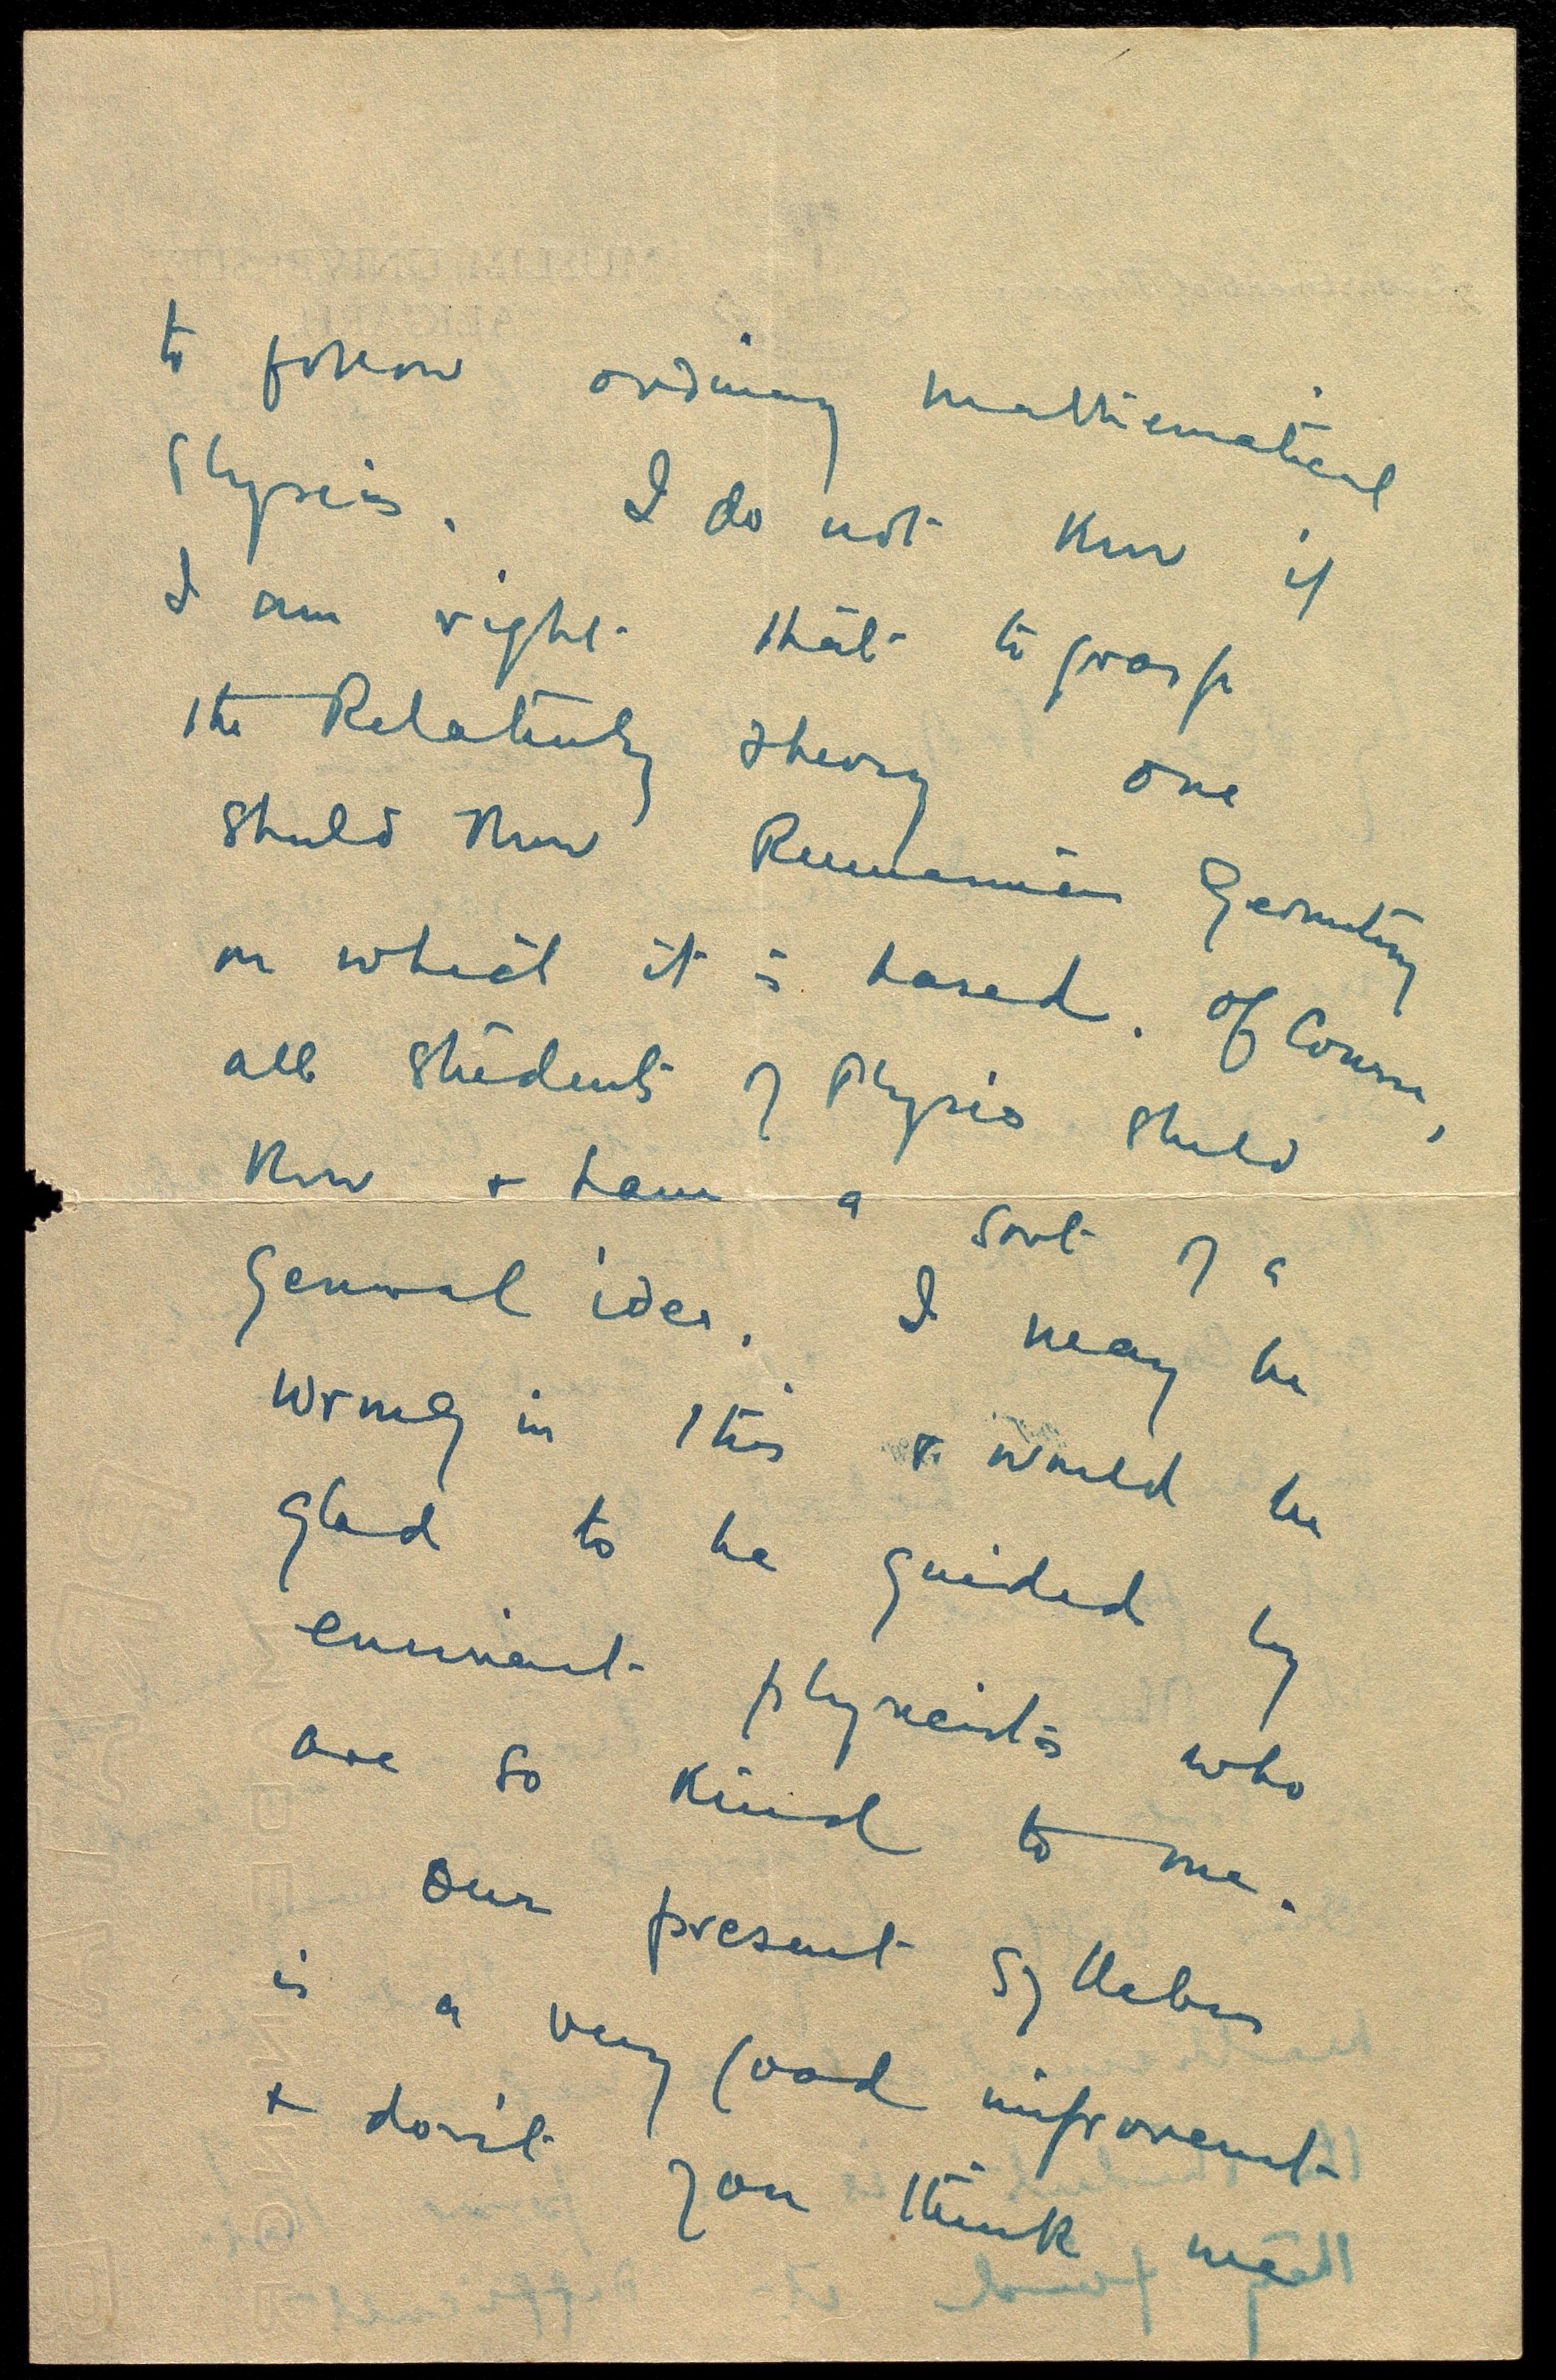 to follow ordinary mathematical
Physics. I do not know if
I am right that to grasp
the Relativity theory one
should know Riemannian Geometry
on which it is based. Of Course,
all students of Physics should
know & have a sort of a
general idea. I may be
wrong in this & would be
glad to be guided by
eminent physicists who
are so kind to me.
Our present Syllabus
is a very good improvement
& don't you think